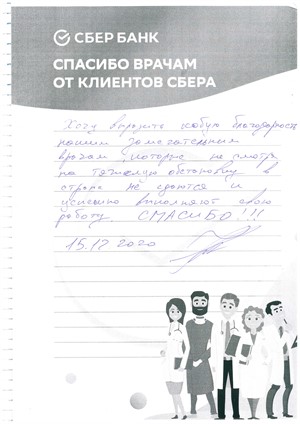 СБЕР БАНК
СПАСИБО ВРАЧАМ
ОТ КЛИЕНТОВ СБЕРА
Хочу выразить благодарность
нашим замечательным
врачам, которые не смотр
на тяжелую обстановку в
стране не сдаются и
успешно выполняют свою
работу. СПАСИБО!!!
15.12 2020